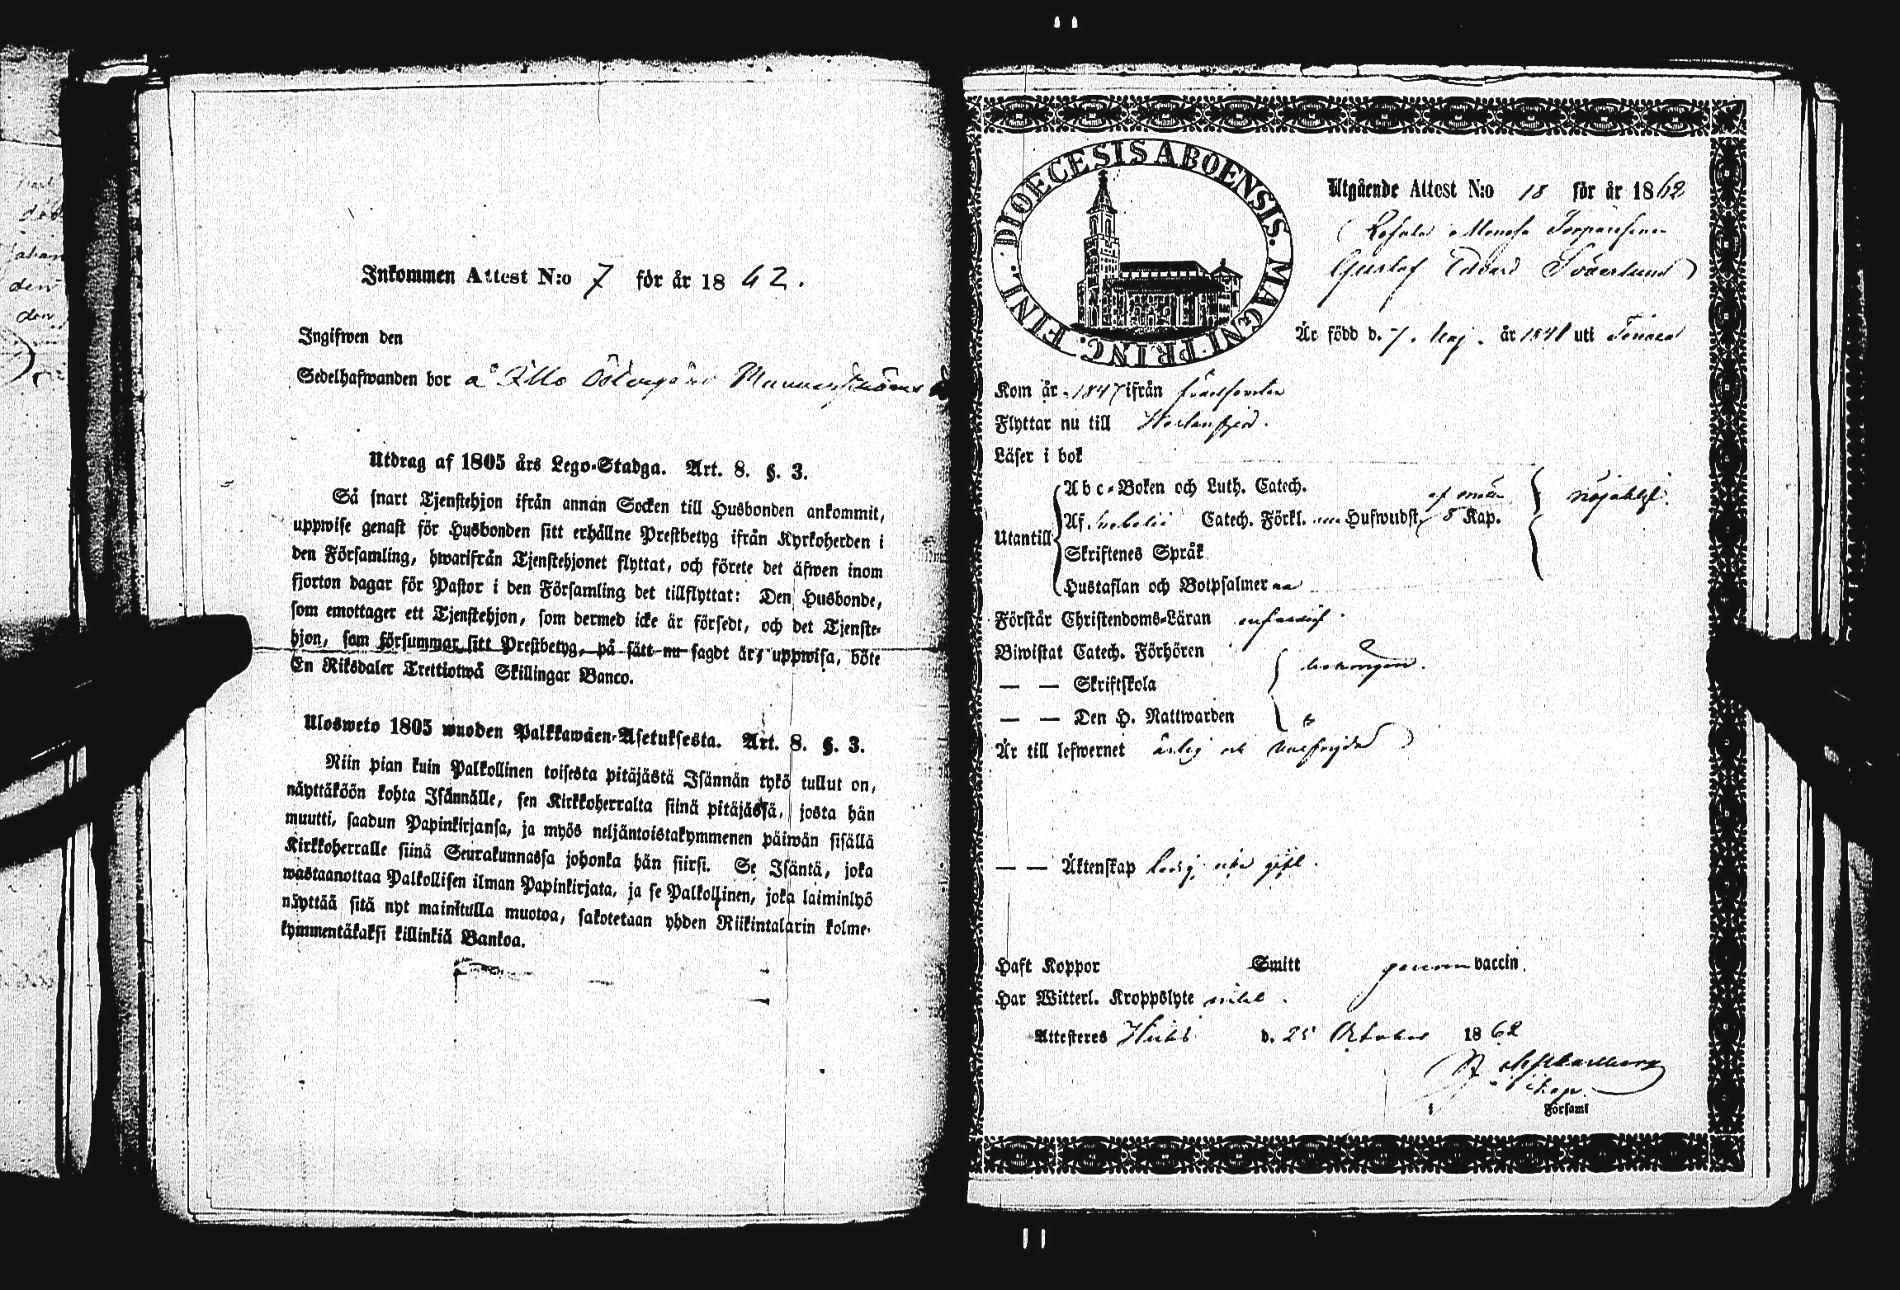 Inkommen Attest N:o 7 för år 1862.
Ingifwen den
Sedelhafwanden bor å
Utdrag af 1805 års Lego-Stadga. Art. 8. §. 3.
Så snart Tjenstehjon ifrån annan Socken till Husbonden ankommit,
uppwise genast för Husbonden sitt erhållne Prestbetyg ifrån Kyrkoherden i
den Församling, hwarifrån Tjenstehjonet flyttat, och förete det äfwen inom
fjorton dagar för Pastor i den Församling det tillflyttat: Den Husbonde,
som emottager ett Tjenstehjon, som dermed icke är försedt, och det Tjenste-
hjon, som försummar sitt Prestbetyg, på sätt nu sagdt är, uppwisa, böte
En Riksdaler Trettiotwå Skillingar Banco.
Ulosweto 1805 wuoden Palkkawäen-Asetuksesta. Art. 8. §. 3.
Niin pian kuin Palkollinen toisesta pitäjästä Isännän tykö tullut on,
näyttäköön kohta Isännälle, sen Kirkkoherralta siinä pitäjässä, josta hän
muutti, saadun Papinkirjansa, ja myös neljäntoistakymmenen päiwän sisällä
Kirkkoherralle siinä Seurakunnassa johonka hän siirsi. Se Isäntä, joka
wastaanottaa Palkollisen ilman Papinkirjata, ja se Palkollinen, joka laiminlyö
näyttää sitä nyt mainitulla muotoa, sakotetaan yhden Riikintalarin kolme-
kymmentäkaksi killinkiä Bankoa.
DIOECESIS ABOENSIS. MAGNI PRINC. FINL.
Utgående Attest N:o 18 för år 1862
Gustaf Edvard Söderlund
Är född d. 7. Maj. år 1841 uti
Kom år 1847 ifrån
Flyttar nu till
Läser i bok
Abc-Boken och Luth. Catech.
Af Catech. Förkl. Hufwudst. 8 Kap.
Utantill
Skriftenes Språk
Hustaflan och Botpsalmer
Förstår Christendoms-Läran
Biwistat Catech. Förhören
— — Skriftskola
— — Den H. Nattwarden
Är till lefwernet ärlig och
— — Äktenskap ledig
Haft Koppor Smitt genom vaccin.
Har Witterl. Kroppslyte
Attesteres d. 25 Oktober 1862
i Församl